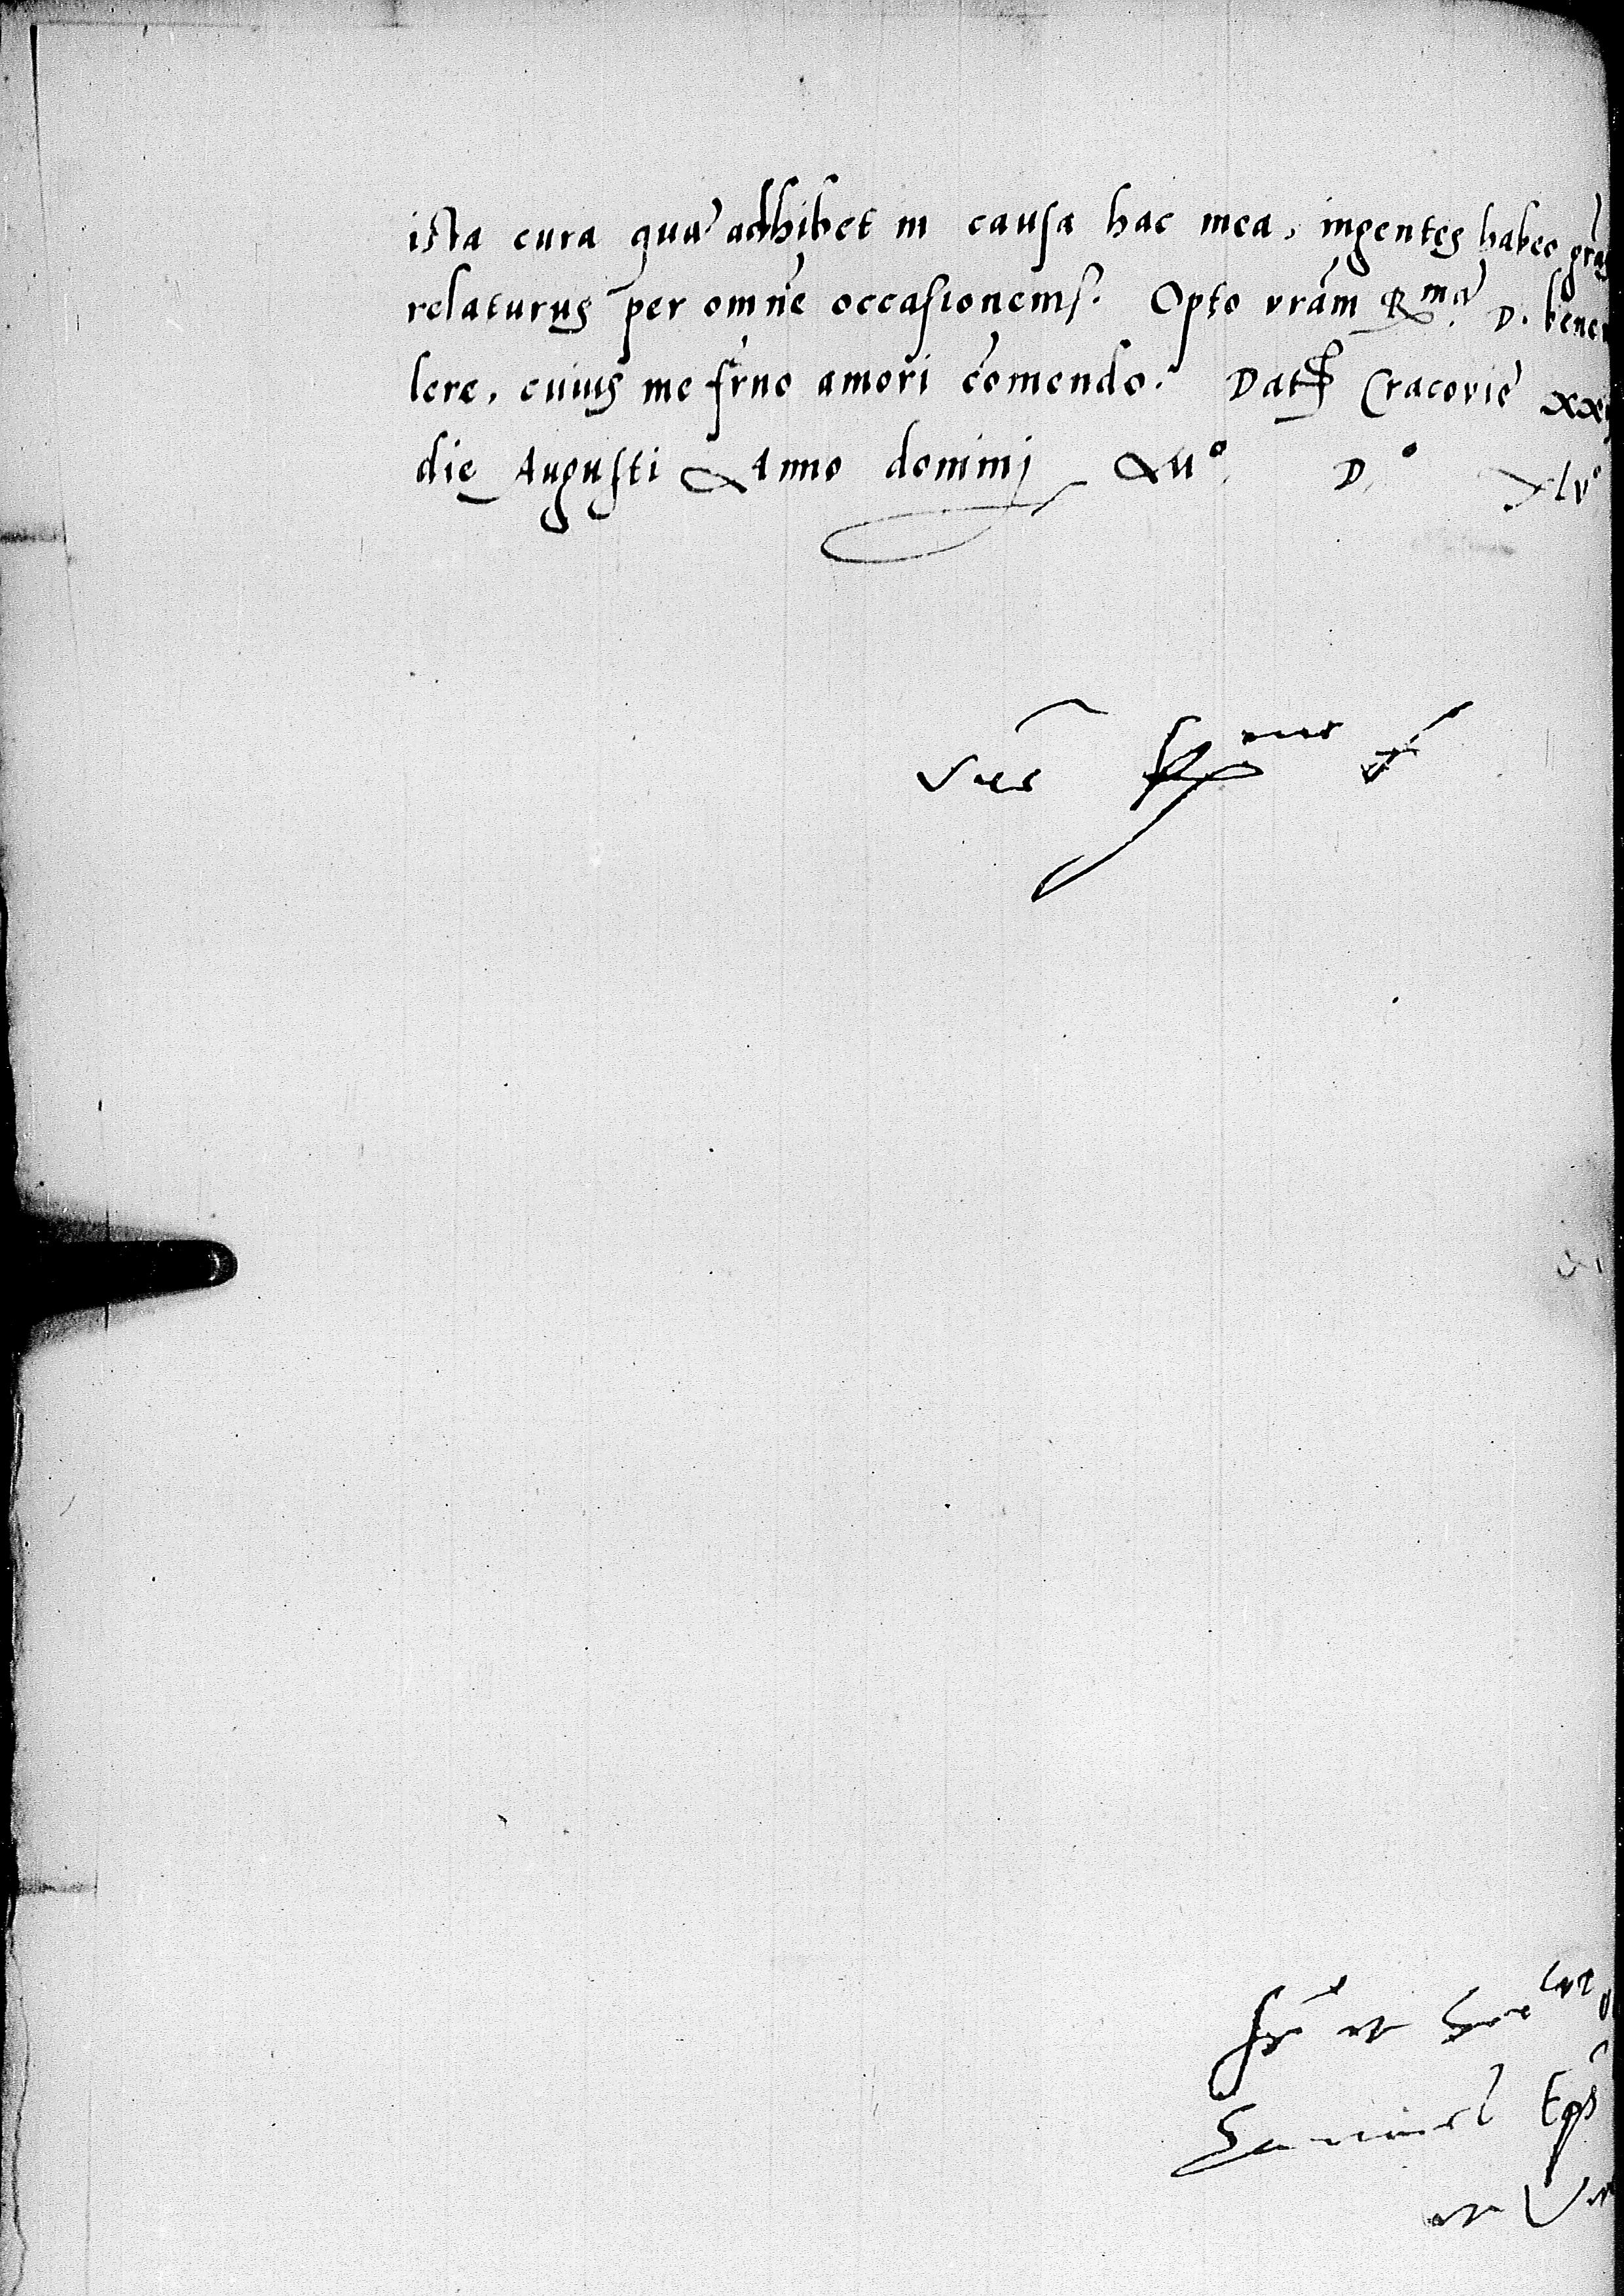 ista cura qua᾽ adhibet in causa hac mea, ingentes habeo gr̃as
relaturus per omñe occasionem. Opto vrãm Rma᾽ D. bene
lere, cuius me fr̃no amori c̃omendo. Dat Cracovie᾽ xx
die Augusti Anno dominj Mº Dº xlvº
Vre͂ R me D
fr et
Samuel Eps
et